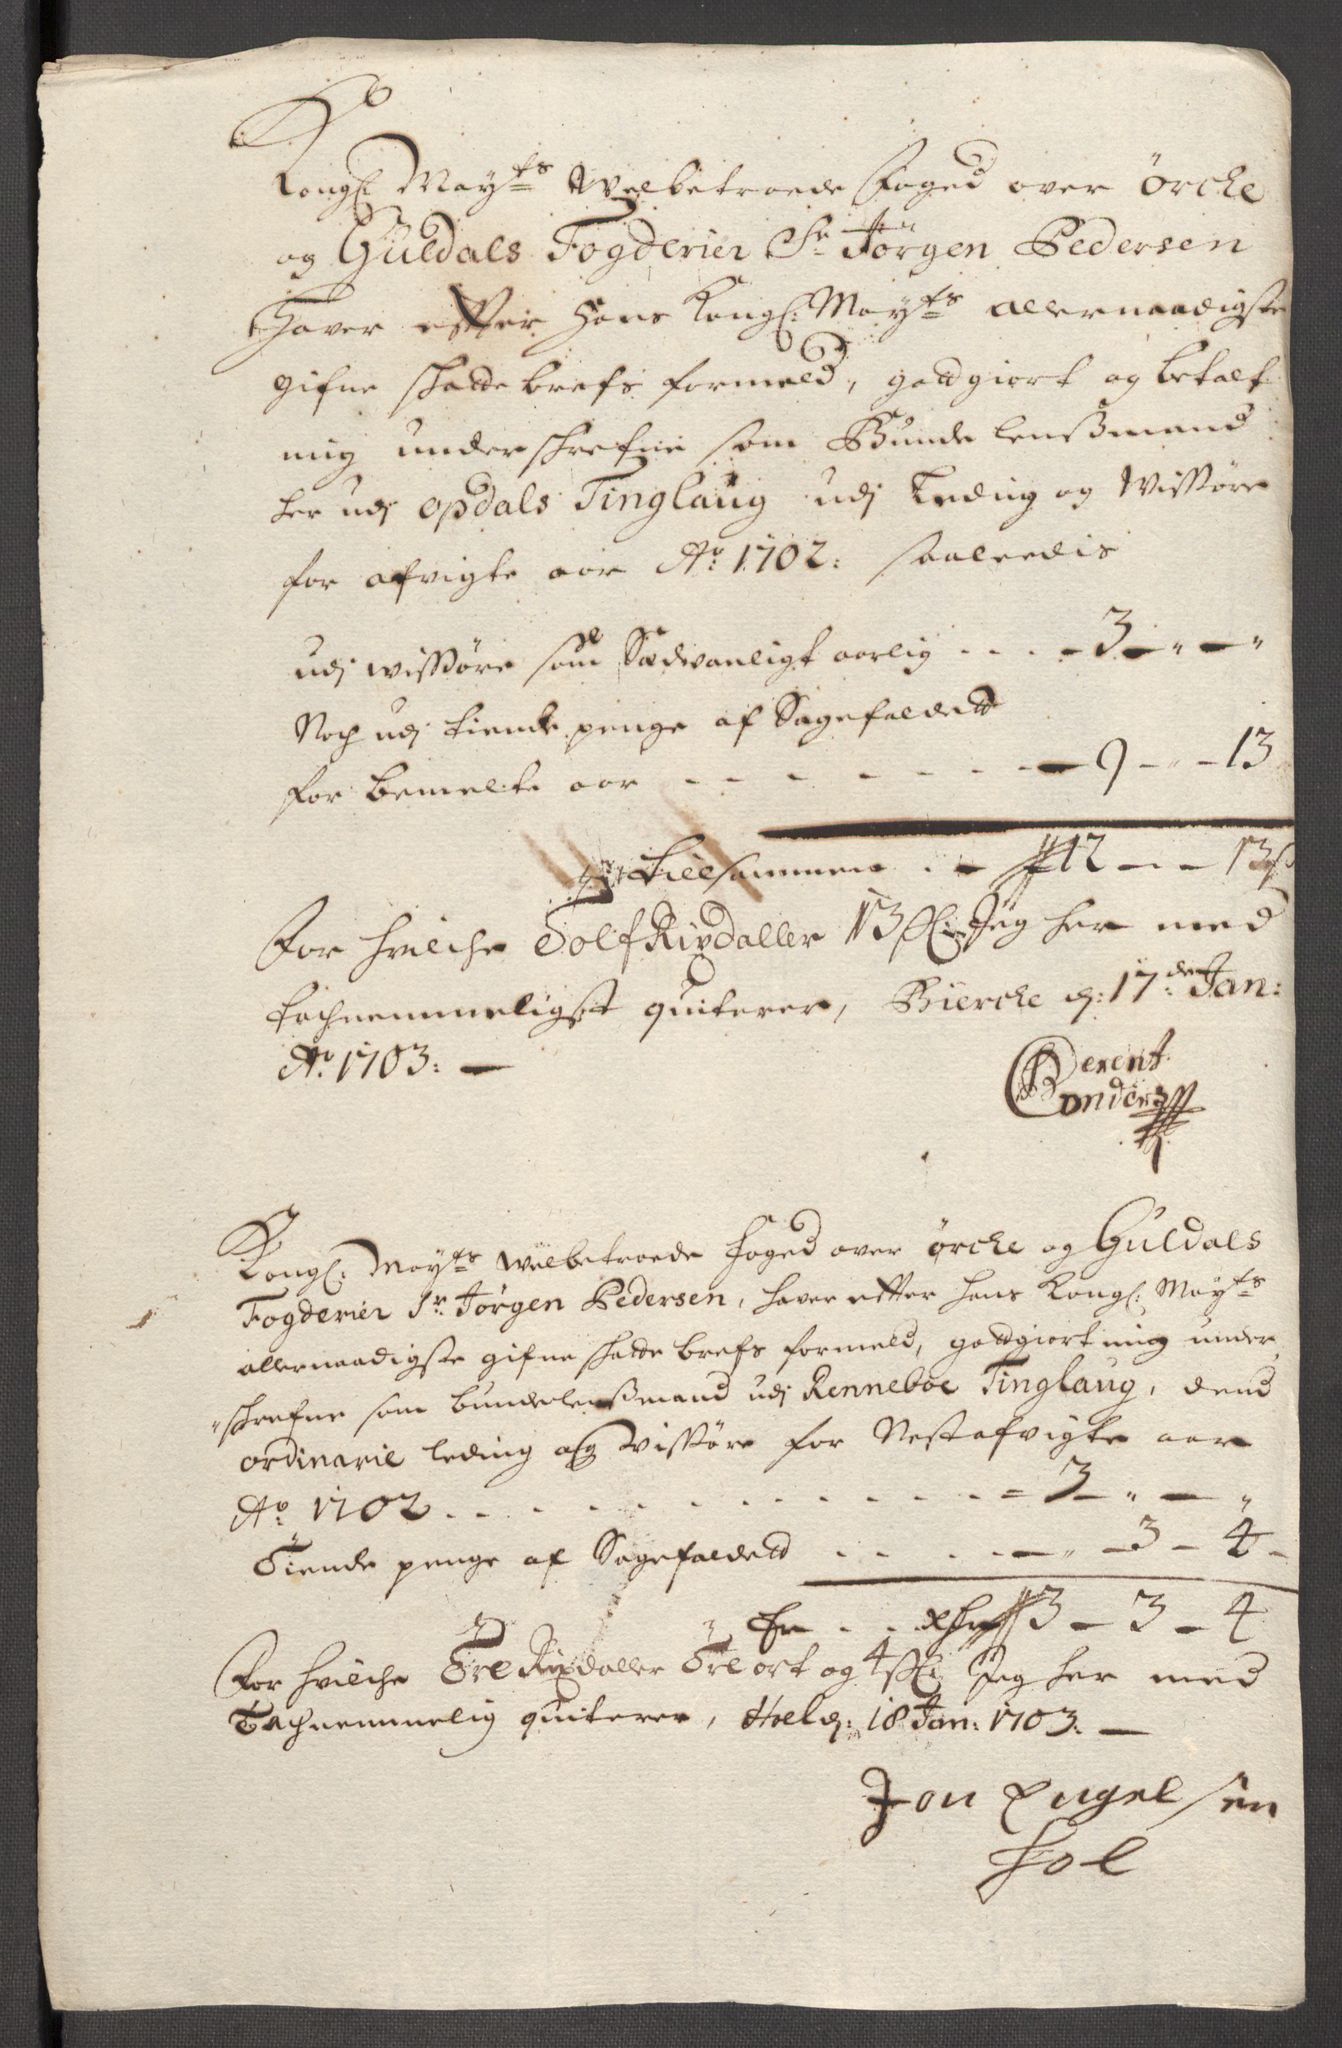 Kongl: May:ts Welbetroede Foged over Örcke
og Guldals Fogderier Sr Jörgen Pedersen
Hafver effter Hans Kongl: May:ts allernaadigste
gifne skatte brefs formeld, godtgiort og betalt
mig underskrefne som Bunde lensßmand
her udj Opdals Tinglaug udj Leding og Wissöre
for afvigte aar Ao: 1702: saaledis
udj wissöre som Sædvanligt aarlig . . . - 3 - " - "
Noch udj tiende penge af Sagefaldett
for bemelte aar - - - - - - - 9 - " - 13
tillsammen . . - 12 - - - 13 s
For hvilche Tolf Rixdaller 13 sk: Jeg her med
tachnemmeligst quiterer, Biercke d: 17de Jan:
Ao: 1703: -
Berent
Kongl: May:ts welbetroede foged over örcke og Guldals
Fogderier Sr Jörgen Pedersen, haver effter hans Kongl: May:ts
allernaadigste gifne skatte brefs formeld, godtgiort mig under
"skrefne som bundelensßmand udj Renneboe Tinglaug, dend
ordinarie leding og Wissöre for Nestafvigte aar
Ao: 1702 . . . . . . . . . . = 3 - " - "
Tiende penge af Sagefaldett . . . . - " - 3 - 4 -
Er . . 3 - 3 - 4
For hvilche Tre Rixdaller Tre ort og 4 sk: Jeg her med
Tachnemmelig quiterer, Hoel d: 18 Jan: 1703: -
Jon Engelsen
Hol